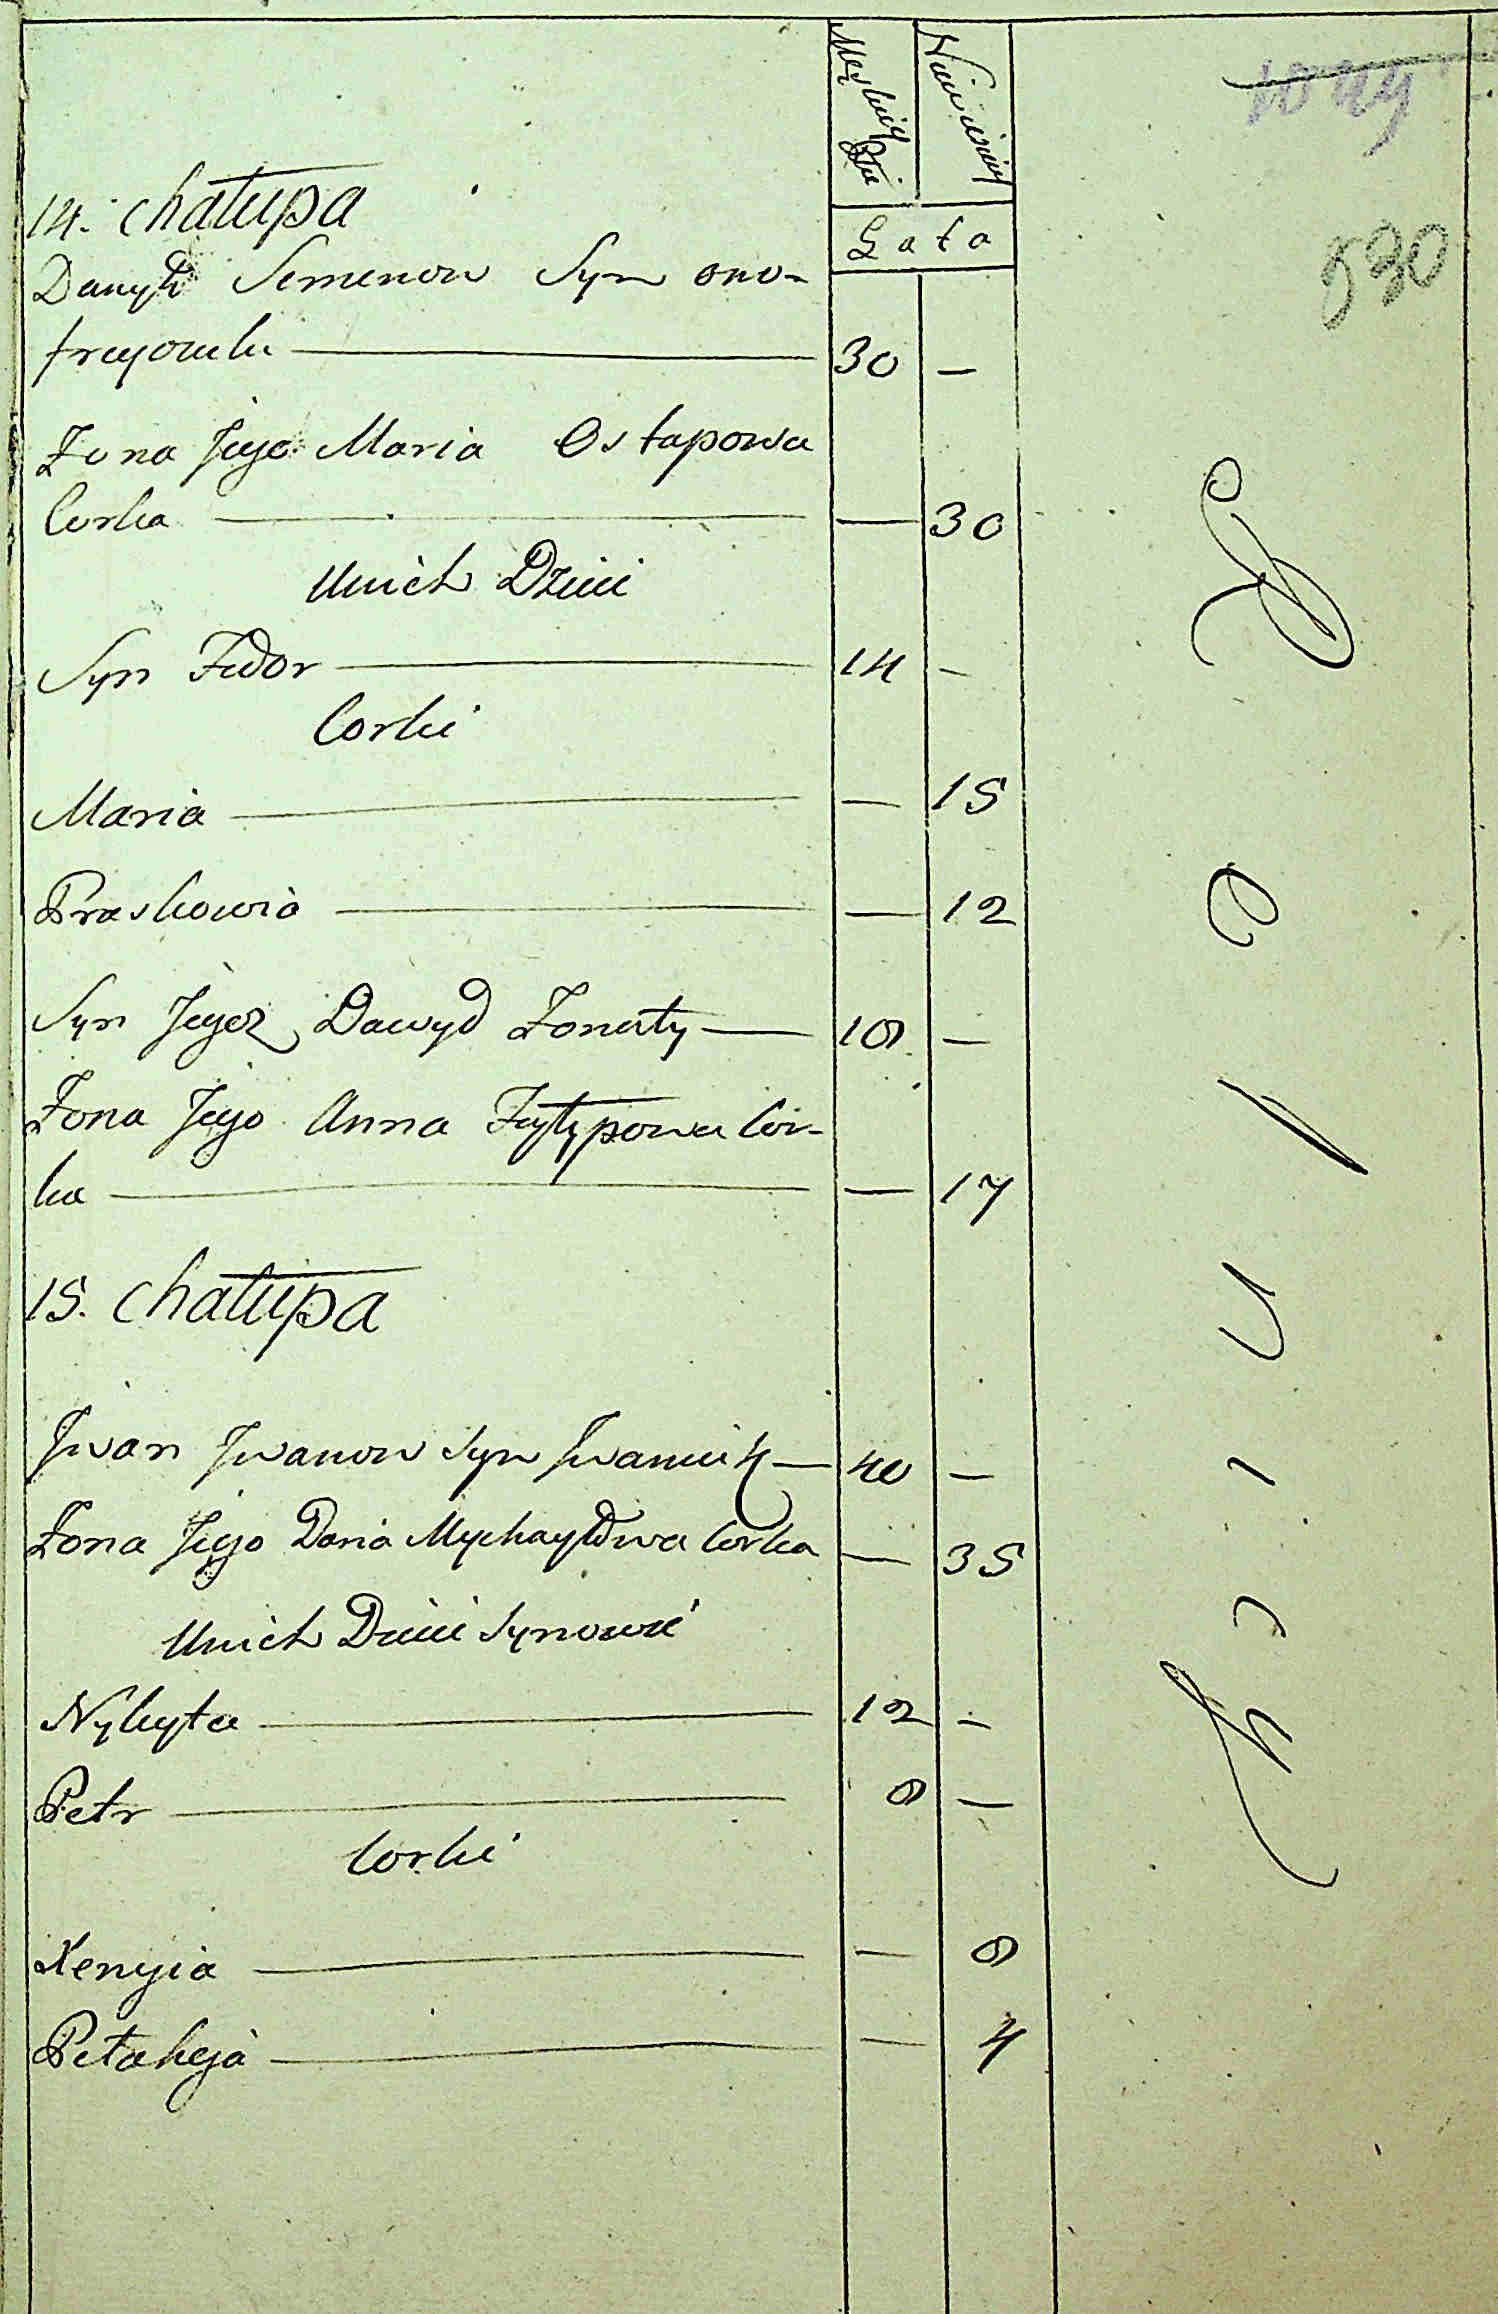 Męskiey Płci
Niewieściey
Lata
14. Chałupa
Danyło Semenow Syn Ono-
freyczuk 30 —
Żona Jego Maria Ostapowa
Corka — 30
U nich Dzieci
Syn Fedor 14 —
Corki
Maria — 15
Praskowia — 12
Syn Jegoż Dawyd Żonaty — 18 —
Żona Jego Anna Fyłypowa Cor-
ka — 17
15. Chałupa
Jwan Jwanow Syn Jwaniuk — 40 —
Żona Jego Daria Mychayłowa Corka — 35
U nich Dzieci Synowie
Nykyta 12 —
Petr 8 —
Corki
Xenyia — 8
Pełaheja — 4
530